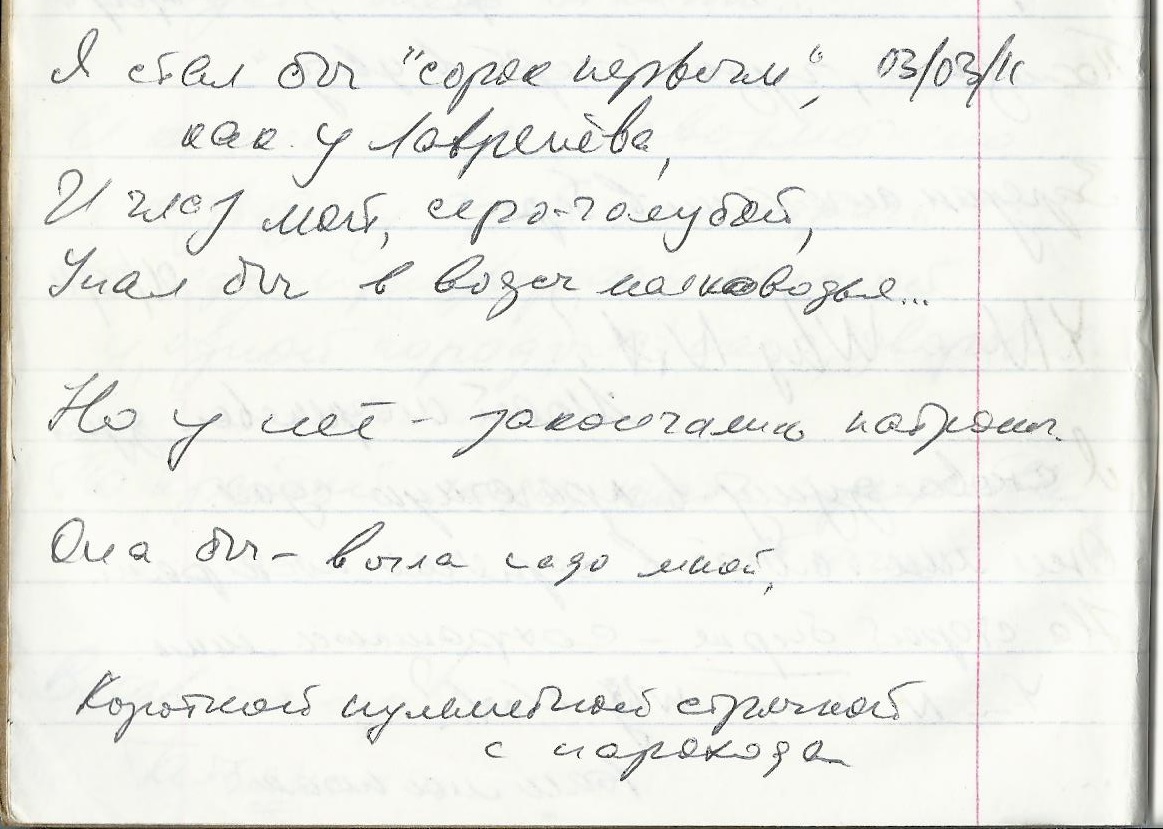 Я стал бы "сорок первым", 03/03/11
как у Лавренёва,
И глаз мой, серо-голубой,
Упал бы в воды мелководья...
Но у неё - закончались патроны.
Она бы - выла надо мной,
Короткой пулемётной строчкой
с парохода